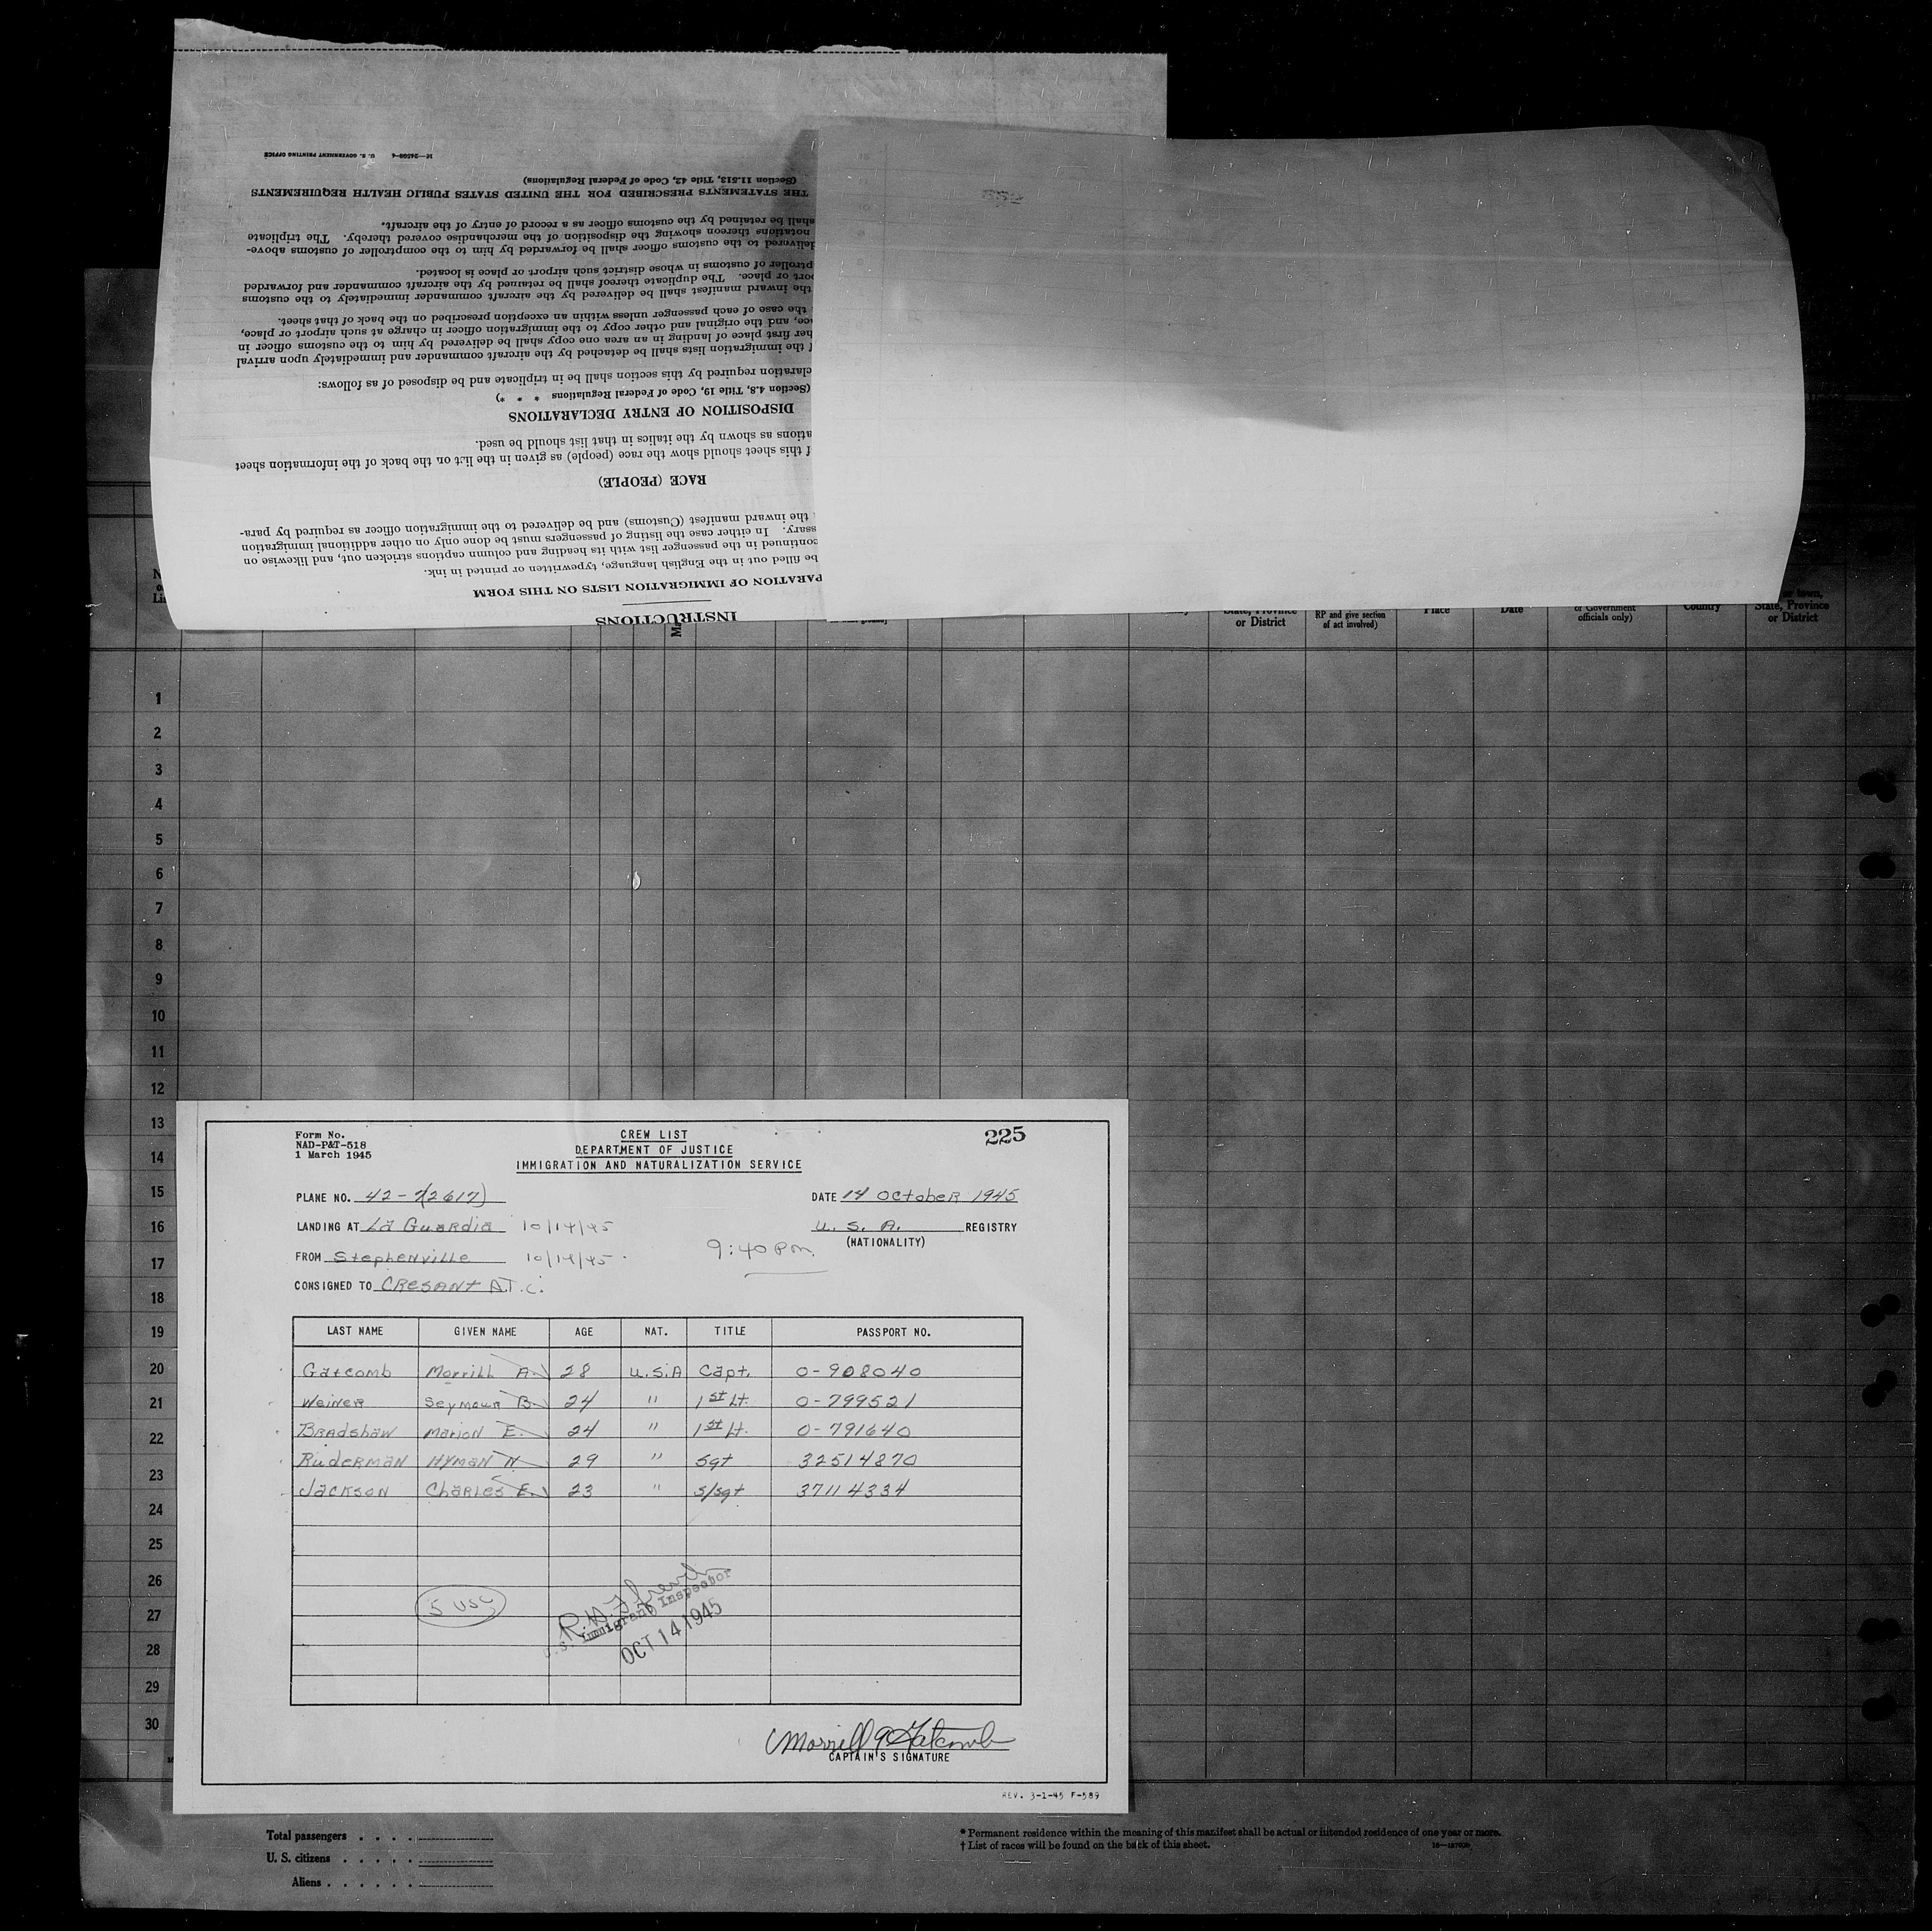 16—24500-4 U. S. GOVERNMENT PRINTING OFFICE
(Section 11.513, Title 42, Code of Federal Regulations)
THE STATEMENTS PRESCRIBED FOR THE UNITED STATES PUBLIC HEALTH REQUIREMENTS
shall be retained by the customs officer as a record of entry of the aircraft.
notations thereon showing the disposition of the merchandise covered thereby. The triplicate
delivered to the customs officer shall be forwarded by him to the comptroller of customs above-
ptroller of customs in whose district such airport or place is located.
port or place. The duplicate thereof shall be retained by the aircraft commander and forwarded
the inward manifest shall be delivered by the aircraft commander immediately to the customs
the case of each passenger unless within an exception prescribed on the back of that sheet.
ce, and the original and other copy to the immigration officer in charge at such airport or place,
her first place of landing in an area one copy shall be delivered by him to the customs officer in
f the immigration lists shall be detached by the aircraft commander and immediately upon arrival
claration required by this section shall be in triplicate and be disposed of as follows:
(Section 4.8, Title 19, Code of Federal Regulations * * *)
DISPOSITION OF ENTRY DECLARATIONS
ations as shown by the italics in that list should be used.
f this sheet should show the race (people) as given in the list on the back of the information sheet
RACE (PEOPLE)
the inward manifest (Customs) and be delivered to the immigration officer as required by para-
ssary. In either case the listing of passengers must be done only on other additional immigration
continued in the passenger list with its heading and column captions stricken out, and likewise on
be filled out in the English language, typewritten or printed in ink.
PARATION OF IMMIGRATION LISTS ON THIS FORM
INSTRUCTIONS
State, Province or District
RP and give section of act involved)
Place
Date
or Government officials only)
Country
or town, State, Province or District
1
2
3
4
5
6
7
8
9
10
11
12
13
14
15
16
17
18
19
20
21
22
23
24
25
26
27
28
29
30
Form No.
NAD-P&T-518
1 March 1945
CREW LIST
DEPARTMENT OF JUSTICE
IMMIGRATION AND NATURALIZATION SERVICE
225
PLANE NO. 42-7(2617) DATE 14 October 1945
LANDING AT La Guardia 10/14/45 U. S. A. REGISTRY
(NATIONALITY)
FROM Stephenville 10/14/45 9:40 Pm.
CONSIGNED TO CRESANT A.T.C.
LAST NAME GIVEN NAME AGE NAT. TITLE PASSPORT NO.
Gatcomb Morrill A. 28 U.S.A Capt. 0-908040
Weiner Seymour B. 24 " 1st Lt. 0-799521
Bradshaw Marion E. 24 " 1st Lt. 0-791640
Ruderman Hyman N 29 " Sgt 32514870
Jackson Charles E. 23 " S/Sgt 37114334
5 USC
U.S. Immigrant Inspector
OCT 14 1945
Morrill A Gatcomb
CAPTAIN'S SIGNATURE
REV. 3-1-45 F-589
Total passengers . . . .
U. S. citizens . . . . .
Aliens . . . . . .
* Permanent residence within the meaning of this manifest shall be actual or intended residence of one year or more.
† List of races will be found on the back of this sheet.